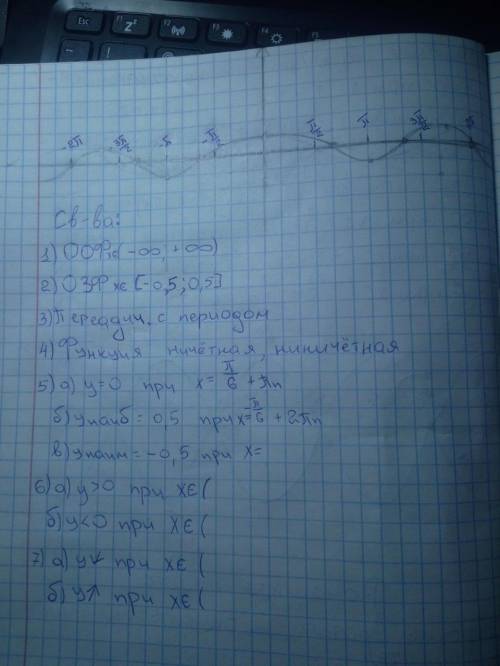 -2π -3π/2 -π -π/2 π/2 π 3π/2 2π
Св-ва:
1) ООФ x∈(-∞, +∞)
2) ОЗФ x∈ [-0,5; 0,5]
3) Периодич. с периодом
4) Функция ничётная, ниничётная
5) а) y=0 при x= π/6 + πn
б) yнаиб = 0,5 при x= -π/6 + 2πn
в) yнаим = -0,5 при x=
6) а) y>0 при x∈ (
б) y<0 при x∈ (
7) а) y↓ при x∈ (
б) y↑ при x∈ (